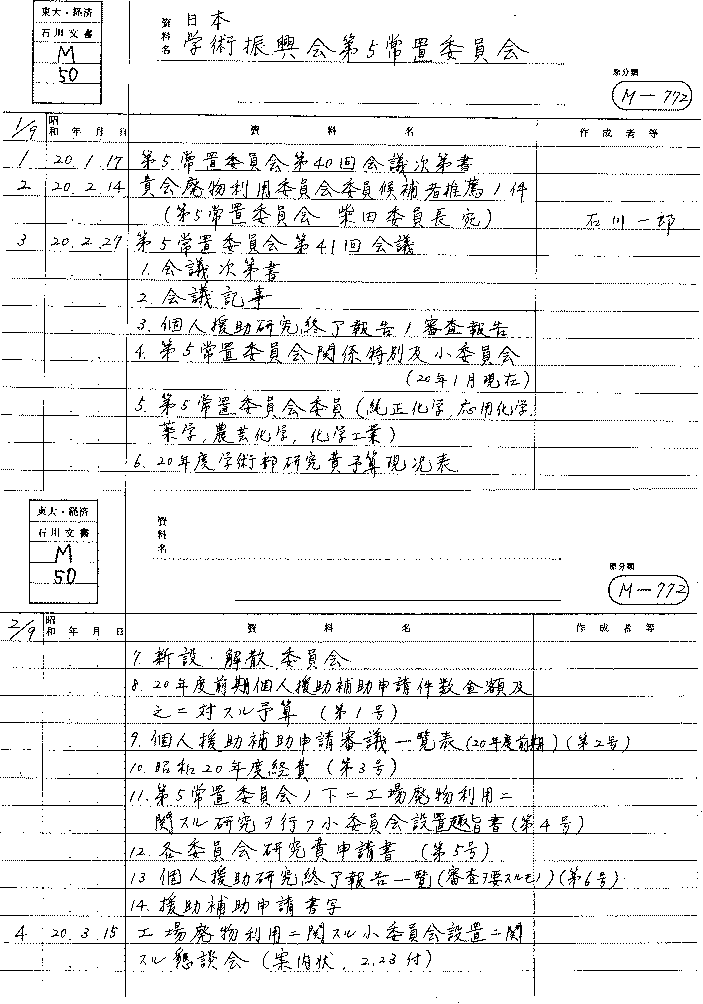 東大・経済
石川文書
M
50
資料名
日本
学術振興会第5常置委員会
原分類
M-772
1/9 昭和 年 月 日 資料名 作成者等
1 20.1.17 第5常置委員会第40回会議次第書
2 20.2.14 貴会廃物利用委員会委員候補者推薦ノ件
(第5常置委員会 柴田委員長宛) 石川一郎
3 20.2.27 第5常置委員会第41回会議
1. 会議次第書
2. 会議記事
3. 個人援助研究終了報告ノ審査報告
4. 第5常置委員会関係特別及小委員会
(20年1月現在)
5. 第5常置委員会委員(純正化学,応用化学
薬学,農芸化学,化学工業)
6. 20年度学術部研究費予算現況表
東大・経済
石川文書
M
50
資料名
原分類
M-772
2/9 昭和 年 月 日 資料名 作成者等
7. 新設・解散委員会
8. 20年度前期個人援助補助申請件数金額及
之ニ対スル予算 (第1号)
9. 個人援助補助申請審議一覧表(20年度前期)(第2号)
10. 昭和20年度経費 (第3号)
11. 第5常置委員会ノ下ニ工場廃物利用ニ
関スル研究ヲ行フ小委員会設置趣旨書(第4号)
12. 各委員会研究費申請書 (第5号)
13 個人援助研究終了報告一覧(審査ヲ要スルモノ)(第6号)
14. 援助補助申請書写
4 20.3.15 工場廃物利用ニ関スル小委員会設置ニ関
スル懇談会 (案内状, 2.23付)